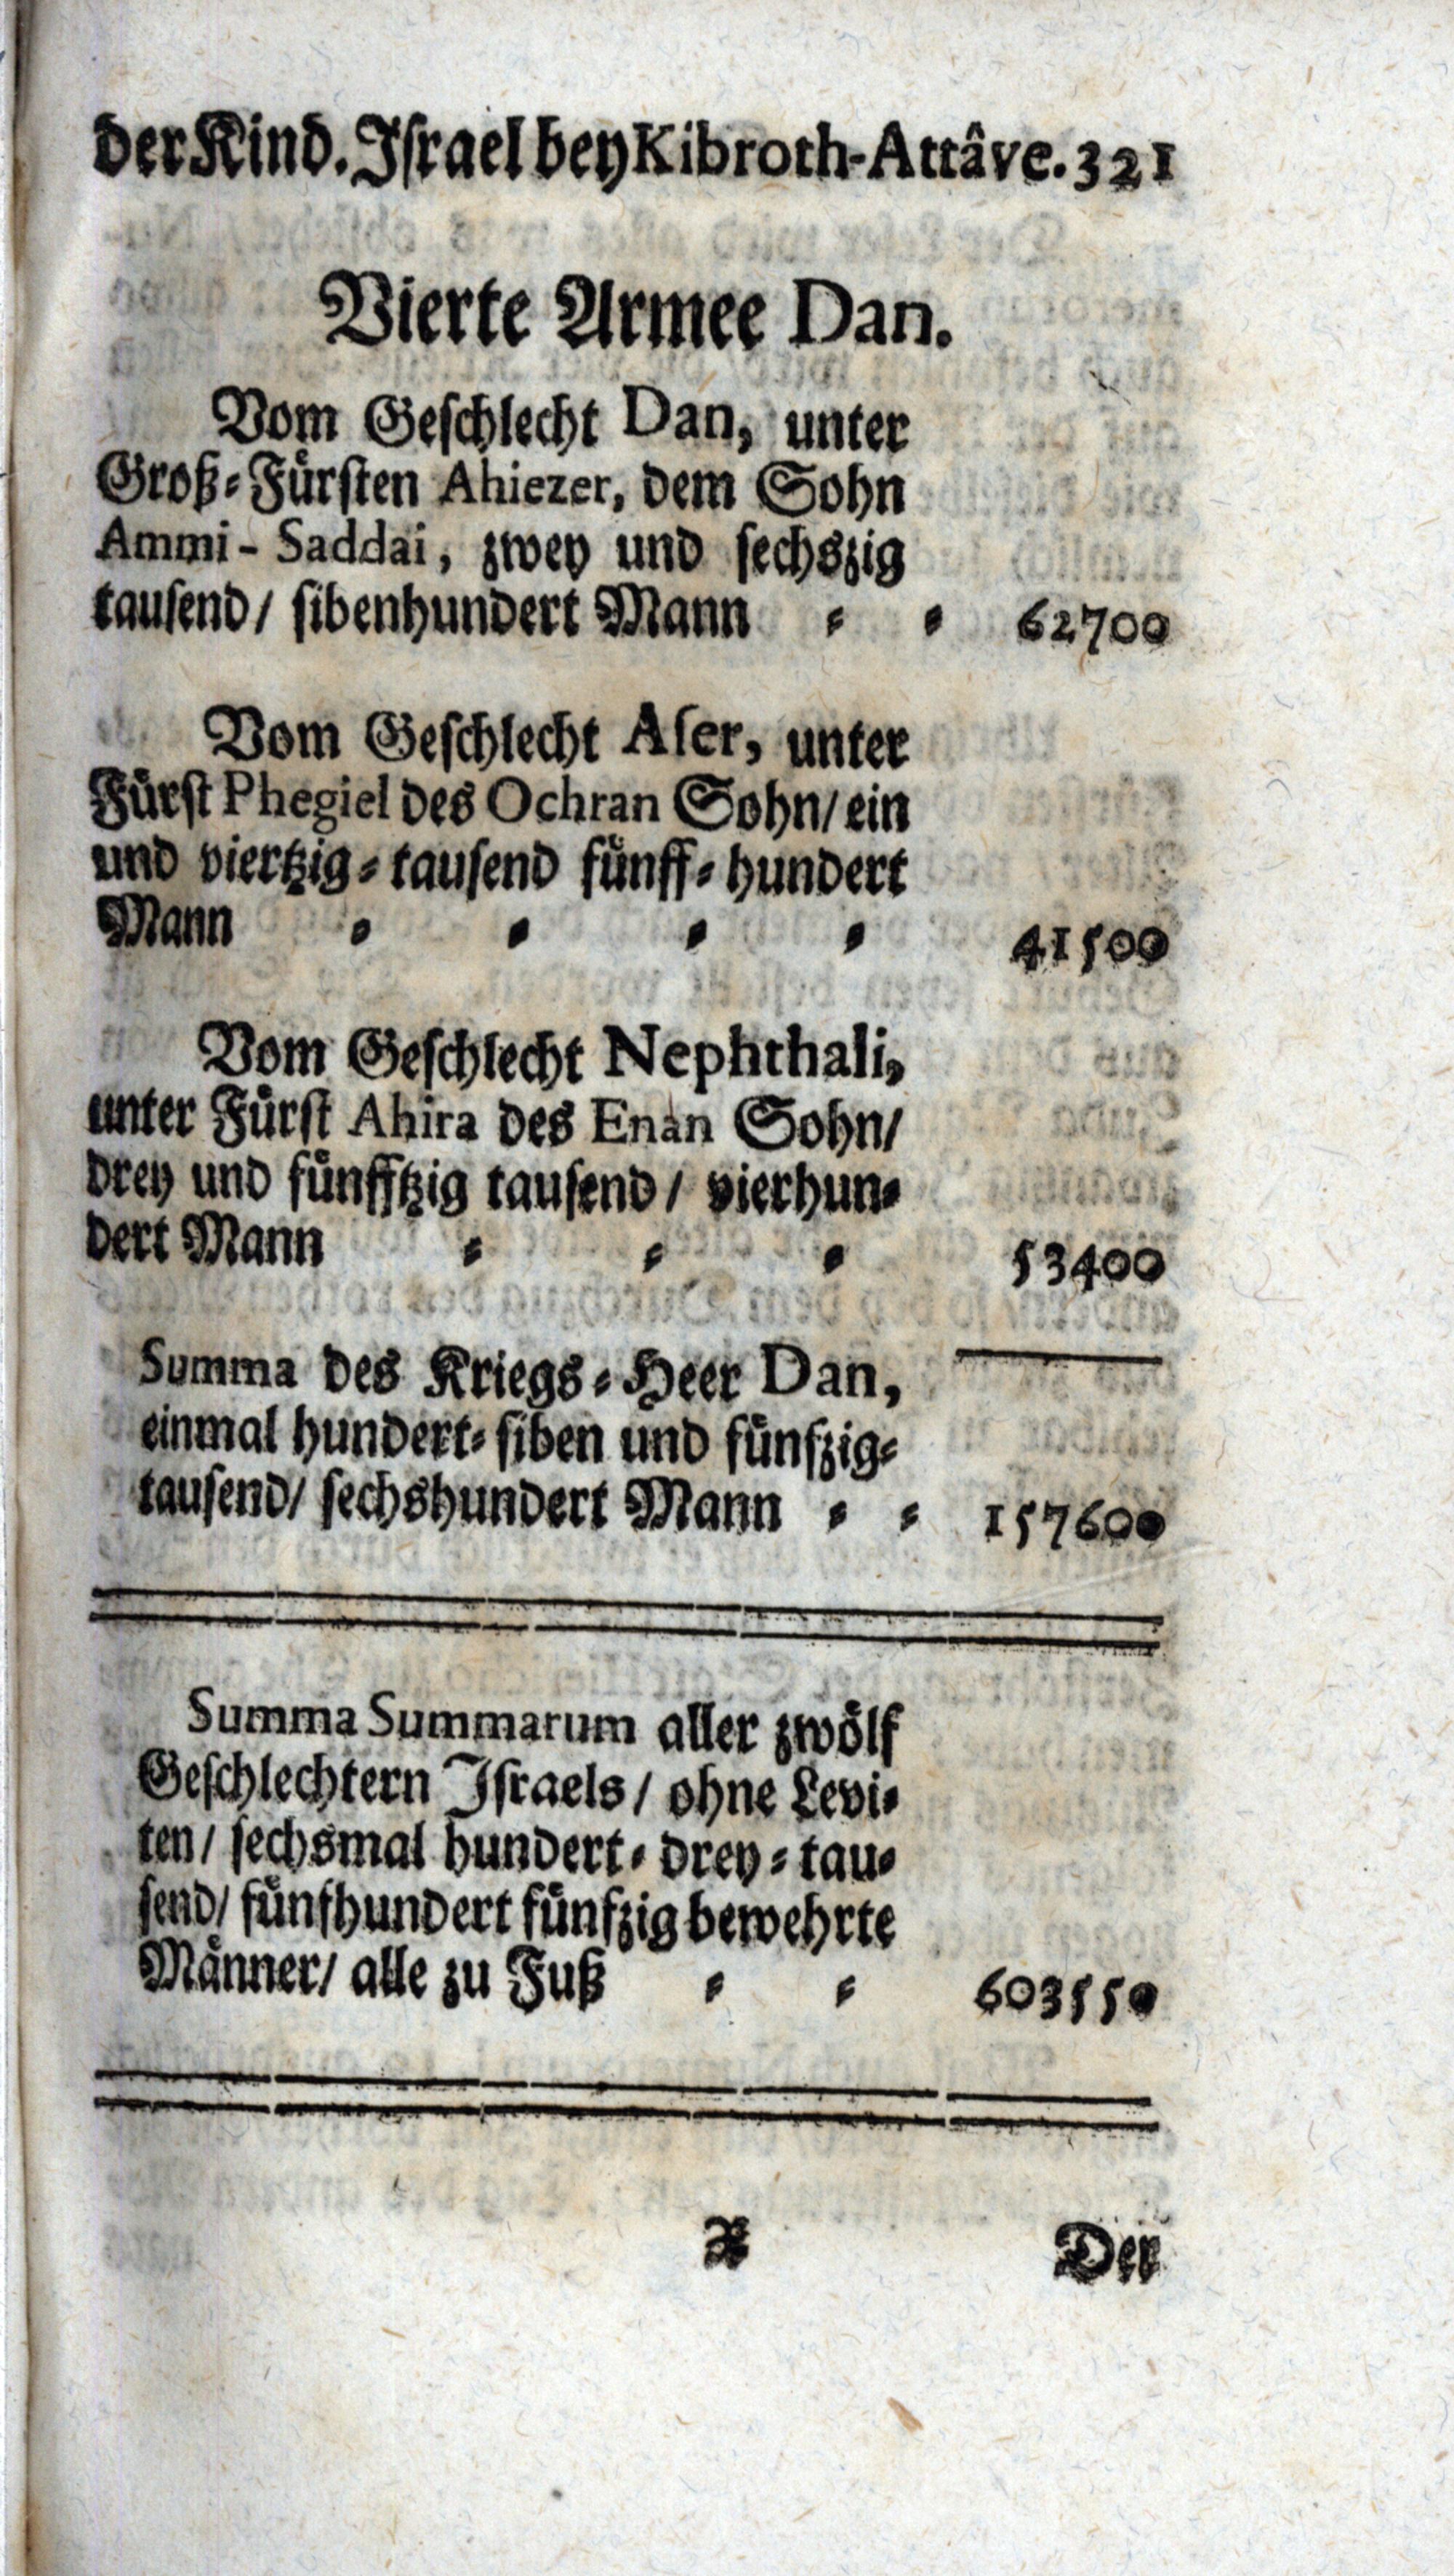 der Kind. Iſrael bey Kibroth-Attâve. 321
Vierte Armee Dan.
Vom Geſchlecht Dan, unter
Groß-Fürſten Ahiezer, dem Sohn
Ammi-Saddai, zwey und ſechszig
tauſend/ ſibenhundert Mann = = 62700
Vom Geſchlecht Aſer, unter
Fürſt Phegiel des Ochran Sohn/ ein
und viertzig-tauſend fünff-hundert
Mann = = = = 41500
Vom Geſchlecht Nephthali,
unter Fürſt Ahira des Enan Sohn/
drey und fünfftzig tauſend/ vierhun-
dert Mann = = = 53400
Summa des Kriegs-Heer Dan,
einmal hundert-ſiben und fünfzig-
tauſend/ ſechshundert Mann = = 157600
Summa Summarum aller zwölf
Geſchlechtern Iſraels/ ohne Levi-
ten/ ſechsmal hundert-drey-tau-
ſend/ fünfhundert fünfzig bewehrte
Männer/ alle zu Fuß = = 603550
X Der